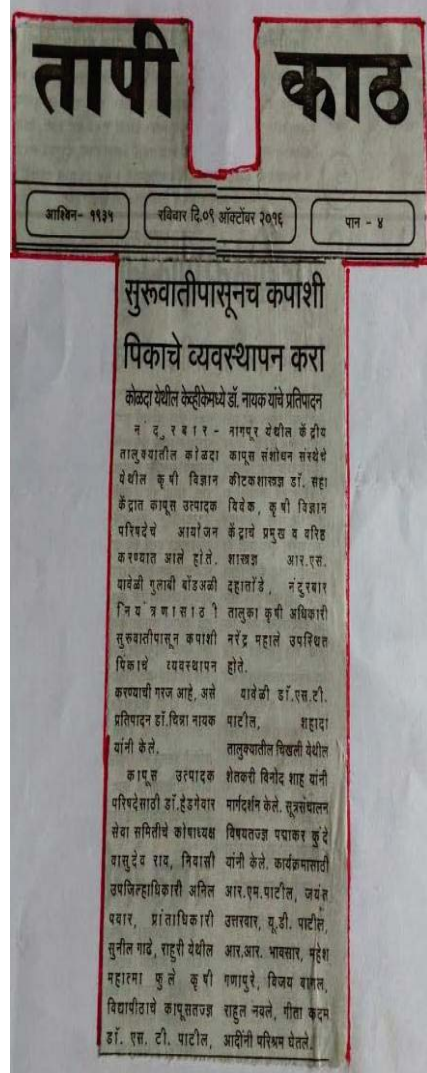 तापी काठ
आश्विन- १९३५ रविवार दि.०९ ऑक्टोंबर २०१६ पान - ४
सुरूवातीपासूनच कपाशी
पिकाचे व्यवस्थापन करा
कोळदा येथील केव्हीकेमध्ये डॉ. नायक यांचे प्रतिपादन
नंदुरबार-
तालुक्यातील कोळदा
येथील कृषी विज्ञान
केंद्रात कापूस उत्पादक
परिषदेचे आयोजन
करण्यात आले होते.
यावेळी गुलाबी बोंडअळी
नियंत्रणासाठी
सुरूवातीपासून कपाशी
पिकाचे व्यवस्थापन
करण्याची गरज आहे, असे
प्रतिपादन डॉ.चिन्ना नायक
यांनी केले.
कापूस उत्पादक
परिषदेसाठी डॉ.हेडगेवार
सेवा समितीचे कोषाध्यक्ष
वासुदेव राव, निवासी
उपजिल्हाधिकारी अनिल
पवार, प्रांताधिकारी
सुनील गाढे, राहुरी येथील
महात्मा फुले कृषी
विद्यापीठाचे कापूसतज्ज्ञ
डॉ. एस. टी. पाटील,
नागपूर येथील केंद्रीय
कापूस संशोधन संस्थेचे
कीटकशास्त्रज्ञ डॉ. सहा
विवेक, कृषी विज्ञान
केंद्राचे प्रमुख व वरिष्ठ
शास्त्रज्ञ आर.एस.
दहातोंडे, नंदुरबार
तालुका कृषी अधिकारी
नरेंद्र महाले उपस्थित
होते.
यावेळी डॉ.एस.टी.
पाटील, शहादा
तालुक्यातील चिखली येथील
शेतकरी विनोद शाह यांनी
मार्गदर्शन केले. सूत्रसंचालन
विषयतज्ज्ञ पद्माकर कुंदे
यांनी केले. कार्यक्रमासाठी
आर.एम.पाटील, जयंत
उत्तरवार, यू.डी. पाटील,
आर.आर. भावसार, महेश
गणापुरे, विजय बागल,
राहुल नवले, गीता कदम
आदींनी परिश्रम घेतले.